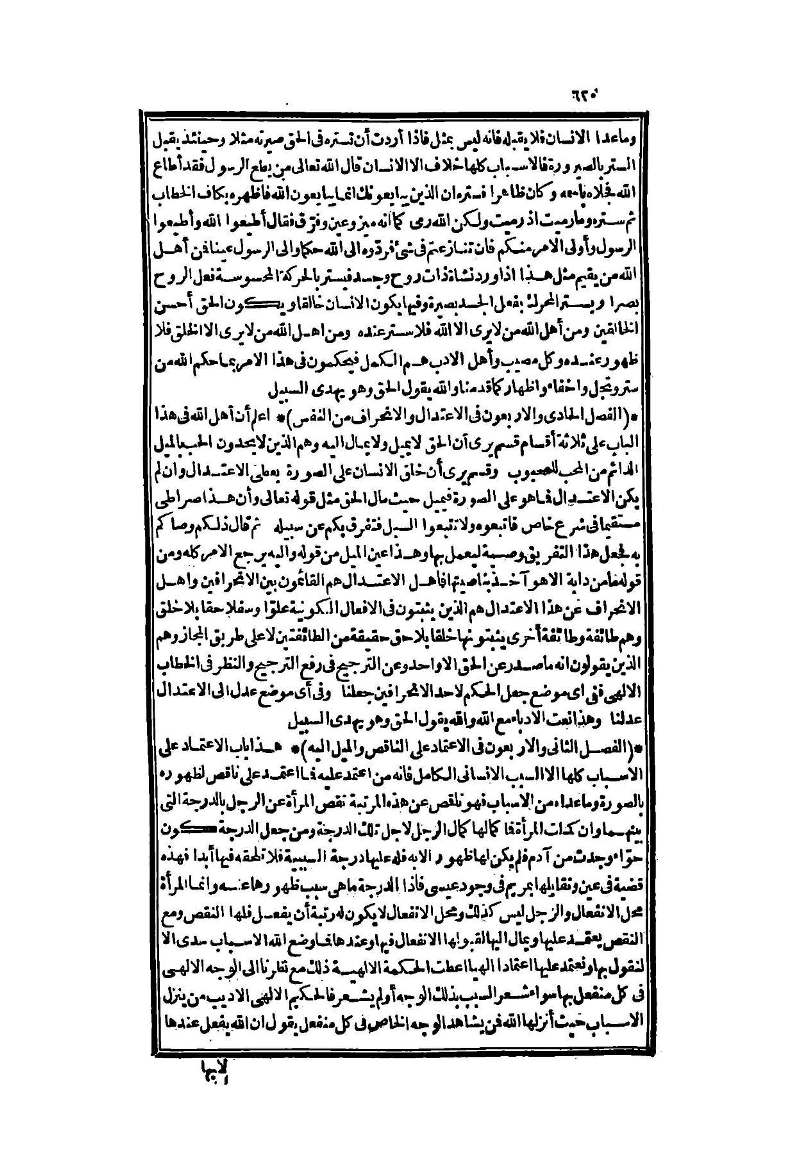 ٦٢٠
وماعدا الانسان فلا يقبله فانه ليس بمثل فاذا أردت أن تستره فى الحق صيرته مثلا وحينئذ يقبل
الستر بالصيرورة فالاسباب كلها خلاف الا الانسان قال الله تعالى من يطع الرسول فقد أطاع
الله فجلاه باسمه وكان ظاهرا فستره ان الذين يبايعونك انما يبايعون الله فاظهره بكاف الخطاب
ثم ستره وما رميت اذ رميت ولكن الله رمى كما انه ميز وعين وفرق فقال أطيعوا الله وأطيعوا
الرسول وأولى الامر منكم فان تنازعتم فى شئ فردوه الى الله حكما والى الرسول عينا فمن أهل
الله من يقيم مثل هذا اذا ورد نشأة ذات روح وجسد فيستر بالحركة المحسوسة فعل الروح
بصرا ويستر المحرك بفعل الجسد بصيرة وفيها يكون الانسان خالقا ويكون الحق أحسن
الخالقين ومن أهل الله من لا يرى الا الله فلا ستر عنده ومن اهل الله من لا يرى الا الخلق فلا
ظهور عنده وكل مصيب وأهل الادب هم الكمل فيحكمون فى هذا الامر بما حكم الله من
ستر وتجل واخفاء واظهار كما قدمنا والله يقول الحق وهو يهدى السبيل
*(الفصل الحادى والاربعون فى الاعتدال والانحراف من النفس)* اعلم أن أهل الله فى هذا
الباب على ثلاثة أقسام قسم يرى أن الحق لا يميل ولا يمال اليه وهم الذين لا يحدون الحب بالميل
الدائم من المحب للمحبوب وقسم يرى أن خلق الانسان على الصورة يعطى الاعتدال وان لم
يكن الاعتدال فما هو على الصورة فيميل حيث مال الحق مثل قوله تعالى وأن هذا صراطى
مستقيما فى شرع خاص فاتبعوه ولا تتبعوا السبل فتفرق بكم عن سبيله ثم قال ذلكم وصاكم
به فجعل هذا التفريق وصية ليعمل بها وهذا عين الميل من قوله واليه يرجع الامر كله ومن
قوله ما من دابة الا هو آخذ بناصيتها فأهل الاعتدال هم القائمون بين الانحرافين واهل
الانحراف عن هذا الاعتدال هم الذين يثبتون فى الافعال الكونية علوّا وسفلا حقا بلا خلق
وهم طائفة وطائفة أخرى يثبتونها خلقا بلا حق حقيقة من الطائفتين لا على طريق المجاز وهم
الذين يقولون انه ما صدر عن الحق الا واحد وعن الترجيح فى رفع الترجيح والنظر فى الخطاب
الالهى ففى اى موضع جعل الحكم لاحد الانحرافين جعلنا وفى أى موضع عدل الى الاعتدال
عدلنا وهذا نعت الادباء مع الله والله يقول الحق وهو يهدى السبيل
*(الفصل الثانى والاربعون فى الاعتماد على الناقص والميل اليه)* هذا باب الاعتماد على
الاسباب كلها الا السبب الانسانى الكامل فانه من اعتمد عليه فما اعتمد على ناقص لظهوره
بالصورة وما عداه من الاسباب فهو ناقص عن هذه المرتبة نقص المرأة عن الرجل بالدرجة التى
بينهما وان كملت المرأة فما كمالها كمال الرجل لاجل تلك الدرجة ومن جعل الدرجة كون
حوّاء وجدت من آدم فلم يكن لها ظهور الا به فله عليها درجة السببية فلا تلحقه فيها أبدا فهذه
قضية فى عين ونقابلها بمريم فى وجود عيسى فاذا الدرجة ما هى سبب ظهورها عنه وانما المرأة
محل الانفعال والرجل ليس كذلك ومحل الانفعال لا يكون له رتبة أن يفعل فلها النقص ومع
النقص يعتمد عليها ويمال اليها لقبولها الانفعال فيها وعندها فما وضع الله الاسباب سدى الا
لنقول بها ونعتمد عليها اعتمادا الهيا اعطت الحكمة الالهية ذلك مع نظرنا الى الوجه الالهى
فى كل منفعل بها سواء شعر السبب بذلك الوجه أو لم يشعر فالحكيم الالهى الاديب من ينزل
الاسباب حيث أنزلها الله فمن يشاهد الوجه الخاص فى كل منفعل يقول ان الله يفعل عندها
لا بها